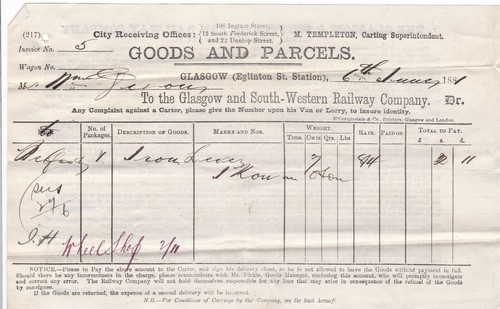 (217)
City Receiving Offices: 100 Ingram Street, 15 South Frederick Street, and 22 Dunlop Street.
M. TEMPLETON, Carting Superintendent.
Invoice No. 5
GOODS AND PARCELS.
Wagon No.
GLASGOW (Eglinton St. Station), 6th June 1881
M Wm
To the Glasgow and South-Western Railway Company, Dr.
Any Complaint against a Carter, please give the Number upon his Van or Lorry, to insure identity.
M'Corquodale & Co., Printers, Glasgow and London.
No. of Packages. DESCRIPTION OF GOODS. MARKS AND NOS. WEIGHT. Tons. Cwt. Qrs. Lbs RATE. PAIDON. TOTAL TO PAY. £ s. d.
Belfast 1 Iron 7 84 2 11
2/6
J.H
Wheel Shop 2/11
NOTICE.—Please to Pay the above amount to the Carter, and sign his delivery sheet, as he is not allowed to leave the Goods without payment in full.
Should there be any incorrectness in the charge, please communicate with Mr. Pickin, Goods Manager, enclosing this account, who will promptly investigate
and correct any error. The Railway Company will not hold themselves responsible for any loss that may arise in consequence of the refusal of the Goods
by consignee.
If the Goods are returned, the expense of a second delivery will be incurred.
N.B.—For Conditions of Carriage by the Company, see the back hereof.